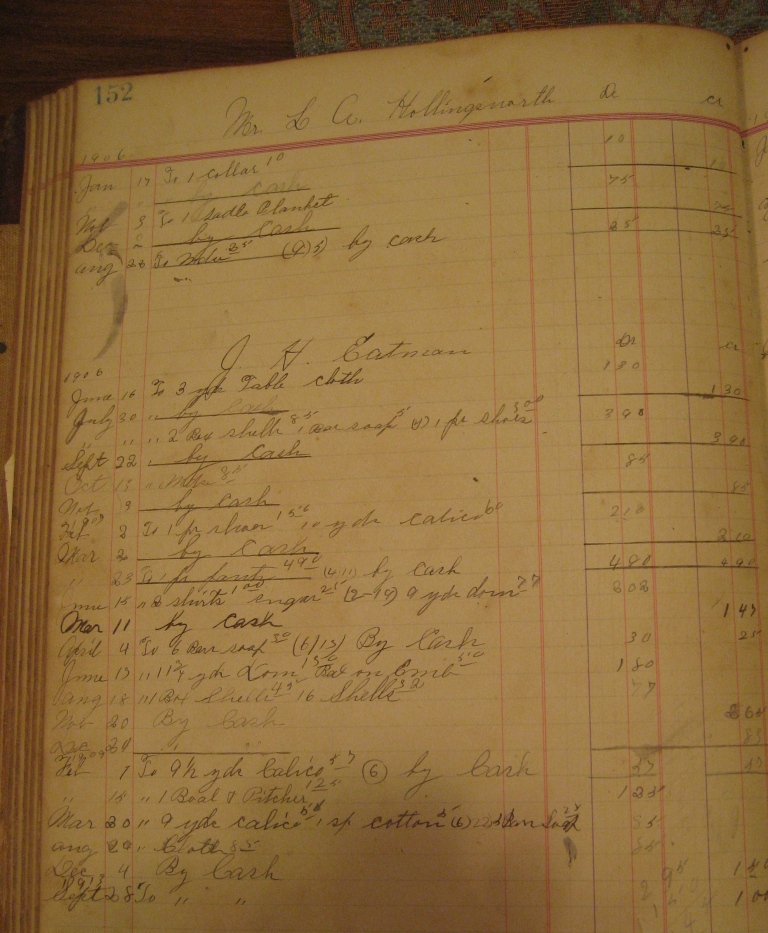 152
Mr. L A. Hollingsworth Dr Cr
1906
Jan 17 To 1 collar 10 10
" by Cash 10
Nov 3 To 1 Sadle Blanket 75
Dec by Cash
Aug 23 To 25 by cash 25 25
J. H. Eatman Dr Cr
1906
June 16 To 3 yds Table cloth 130
July 30 " by Cash 130
" " " 2 Box shells 85 1 Bar soap 5 1 pr shoes 300 390
Sept 22 " by Cash 390
Oct 13 " 85 85
Nov 9 by Cash 85
Feb 2 To 1 pr shoes 150 10 yds calico 60 210
Mar 2 by Cash 210
" 23 To 1 pr pants 490 (4/1) by Cash 490 490
June 15 " 2 shirts 100 sugar 25 9 yds dom 77
Mar 11 by Cash 147
April 4 To 6 Bar soap 30 (6/13) By Cash 30 25
June 13 " yds Dom Bal on 50 180
Aug 18 " 1 Box Shells 45 16 Shells 32 77
Nov 20 By Cash
Dec
Feb 1 To 9½ yds Calico 57 (6) by Cash 57 57
" 15 " 1 Boal & Pitcher 125 125
Mar 20 " 9 yds calico 1 sp cotton 5 (6) Soap 25
Aug 29 " Cloth 85 85
Dec 4 By Cash
Sept 28 To " "